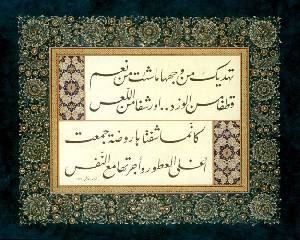 تهديك من وجهها ما شئت من نعم
قطفا من الورد .. او رشفا من اللعس
كأنما شفتاها روضة جمعت
اغلى العطور واجرتها مع النفس